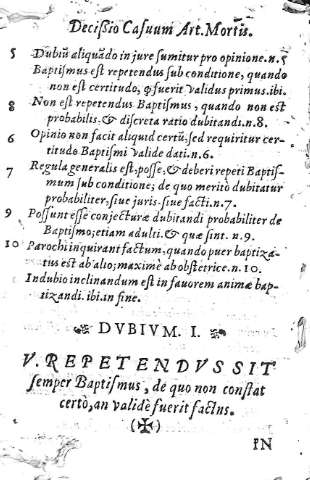 Decißio Casuum Art. Mortis.
5 Dubiū aliquādo in jure sumitur pro opinione. n. 5
Baptismus est repetendus sub conditione, quando
non est certitudo, ꝙ fuerit validus primus. ibi.
8 Non est repetendus Baptismus, quando non est
probabilis, & discreta ratio dubitandi. n. 8.
6 Opinio non facit aliquid certū, sed requiritur cer-
titudo Baptismi valide dati. n. 6.
7 Regula generalis est, posse, & deberi repeti Baptis-
mum sub conditione; de quo meritò dubitatur
probabiliter, siue juris, siue facti. n. 7.
9 Possunt esse conjecturæ dubitandi probabiliter de
Baptismo, etiam adulti. & quæ sint. n. 9.
10 Parochi inquirant factum, quando puer baptiza-
tus est ab alio; maximè ab obstetrice. n. 10.
In dubio inclinandum est in fauorem animæ bap-
tizandi. ibi. an fine.
DVBIVM. I.
V. REPETENDVS SIT
semper Baptismus, de quo non constat
certò, an validè fuerit factus.
(✠)
IN